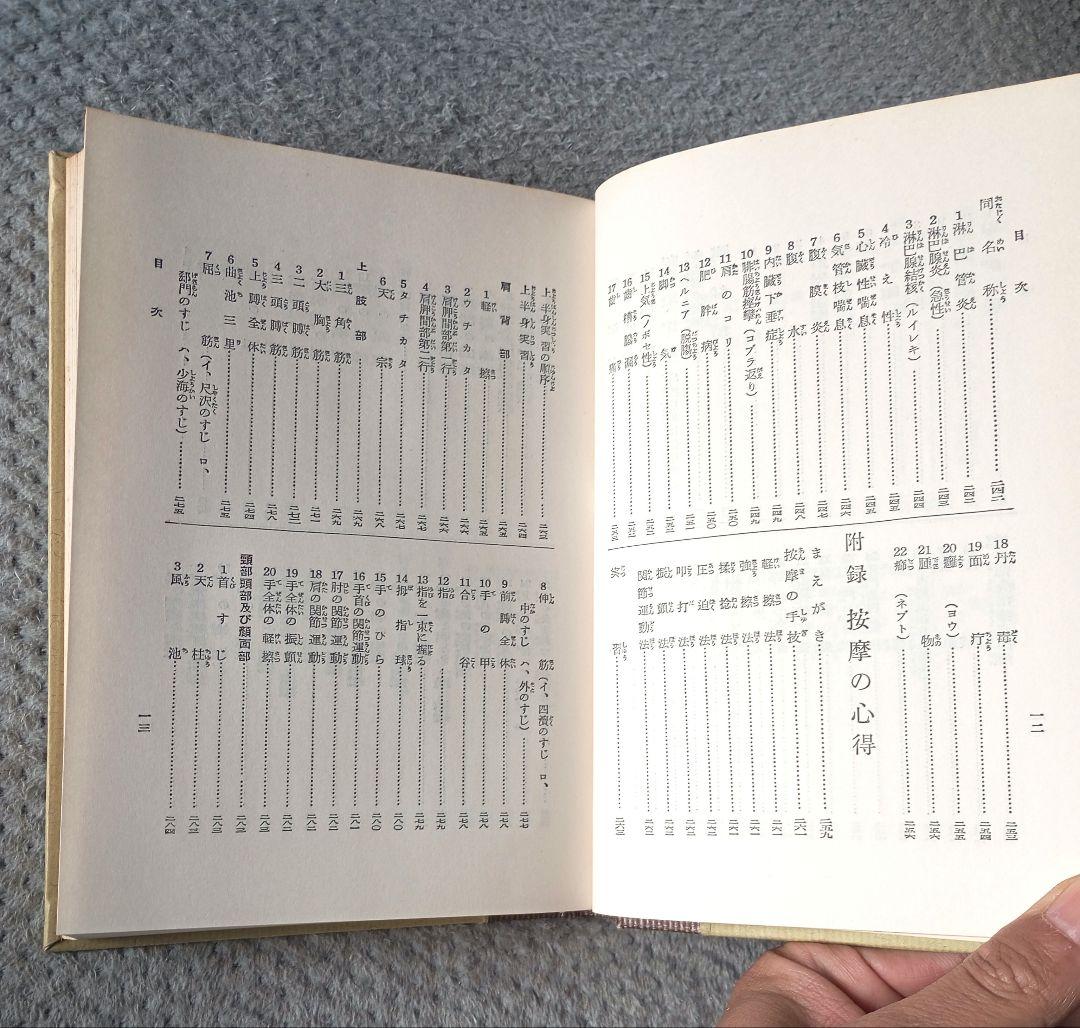 目次
同名称……二四二
1 淋巴管炎……二四二
2 淋巴腺炎(急性)……二四三
3 淋巴腺結核(ルイレキ)……二四四
4 冷え性……二四五
5 心臓性喘息……二四五
6 気管枝喘息……二四六
7 腹膜炎……二四七
8 腹水……二四八
9 内臓下垂症……二四九
10 腓腸筋攣攣(コブラ返り)……二四九
11 肩のコリ……二五〇
12 肥胖病……二五〇
13 ヘルニア(脱腸)……二五一
14 脚気……二五一
15 上気(ノボセ性)……二五二
16 歯槽膿漏……二五二
17 歯痛
18 丹毒……二五三
19 面疔……二五四
20 癰(ヨウ)……二五五
21 腫物……二五六
22 癤(ネブト)……二五六
附録 按摩の心得
まえがき……二五九
按摩の手技……二六一
軽擦法……二六一
強擦法……二六一
揉捻法……二六一
圧迫法……二六二
叩打法……二六二
振顫法……二六二
関節運動法……二六二
実習……二六三
一二
上半身実習の順序……二六三
上半身実習……二六四
肩背部
1 軽擦……二六五
2 ウチカタ……二六六
3 肩胛間部第一行……二六六
4 肩胛間部第二行……二六七
5 タチカタ……二六七
6 天宗……二六八
上肢部
1 三角筋……二六九
2 大胸筋……二七一
3 二頭膊筋……二七二
4 三頭膊筋……二七三
5 上膊全体……二七四
6 曲池三里……二七五
7 屈筋(イ、尺沢のすじ ロ、
郄門のすじ ハ、少海のすじ)……二七五
目次
8 伸筋(イ、四瀆のすじ ロ、
中のすじ ハ、外のすじ)……二七七
9 前膊全体……二七八
10 手の甲……二七八
11 合谷……二七八
12 指……二七九
13 指を一束に握る……二七九
14 拇指球……二八〇
15 手のひら……二八〇
16 手首の関節運動……二八一
17 肘の関節運動……二八一
18 肩の関節運動……二八二
19 手全体の振顫……二八二
20 手全体の軽擦……二八三
頸部頭部及び顔面部……二八三
1 首のすじ……二八三
2 天柱……二八三
3 風池……二八四
一三